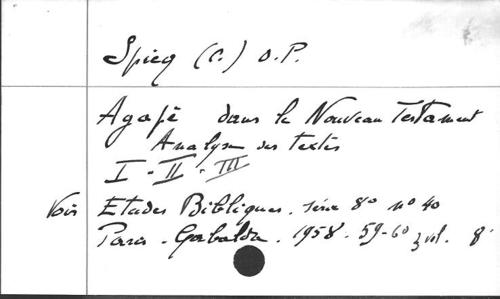 Spicq (C.) O.P.
Agapè dans le Nouveau Testament
Analyse des textes
I - II - III
Voir Etudes Bibliques. série 8° n° 40
Paris - Gabalda. 1958. 59-60 3 vol. 8°